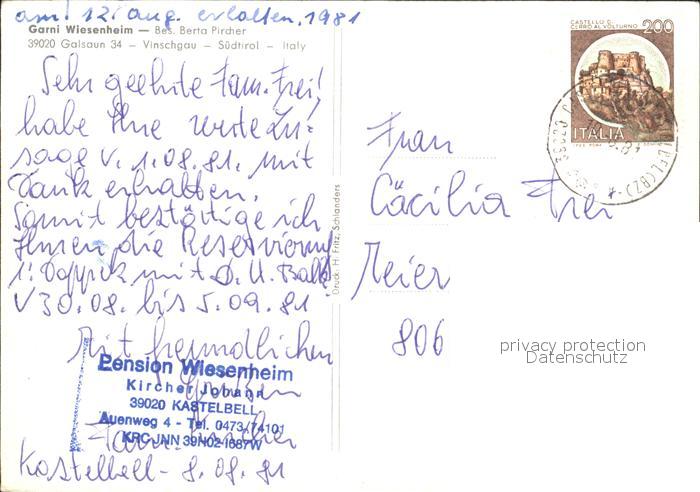 am 12. aug. erhalten, 1981
Garni Wiesenheim — Bes. Berta Pircher
39020 Galsaun 34 – Vinschgau – Südtirol – Italy
Sehr geehrte Fam. Frei!
habe Ihre werte Zu-
sage v. 1.08.81. mit
Dank erhalten.
Somit bestätige ich
Ihnen die Reservierung
1. Doppelz mit D. U. Balk
v 30.08. bis 5.09.81
Mit freundlichen
Grüßen
Fam. Kircher
Kastelbell - 8.08.81
Pension Wiesenheim
Kircher Johann
39020 KASTELBELL
Auenweg 4 - Tel. 0473/74101
Druck: H. Fritz, Schlanders
CASTELLO DI
CERRO AL VOLTURNO
200
ITALIA
39020
Frau
Cäcilia Frei
Meier
806
privacy protection
Datenschutz